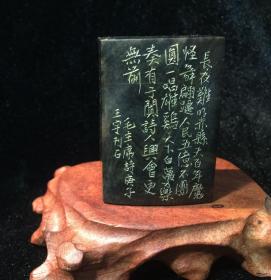 長夜難明赤縣天百年魔
怪舞翩躚人民五億不團
圓一唱雄鷄天下白萬方樂
奏有于闐詩人興會更
無前
毛主席詩庚子
刊石